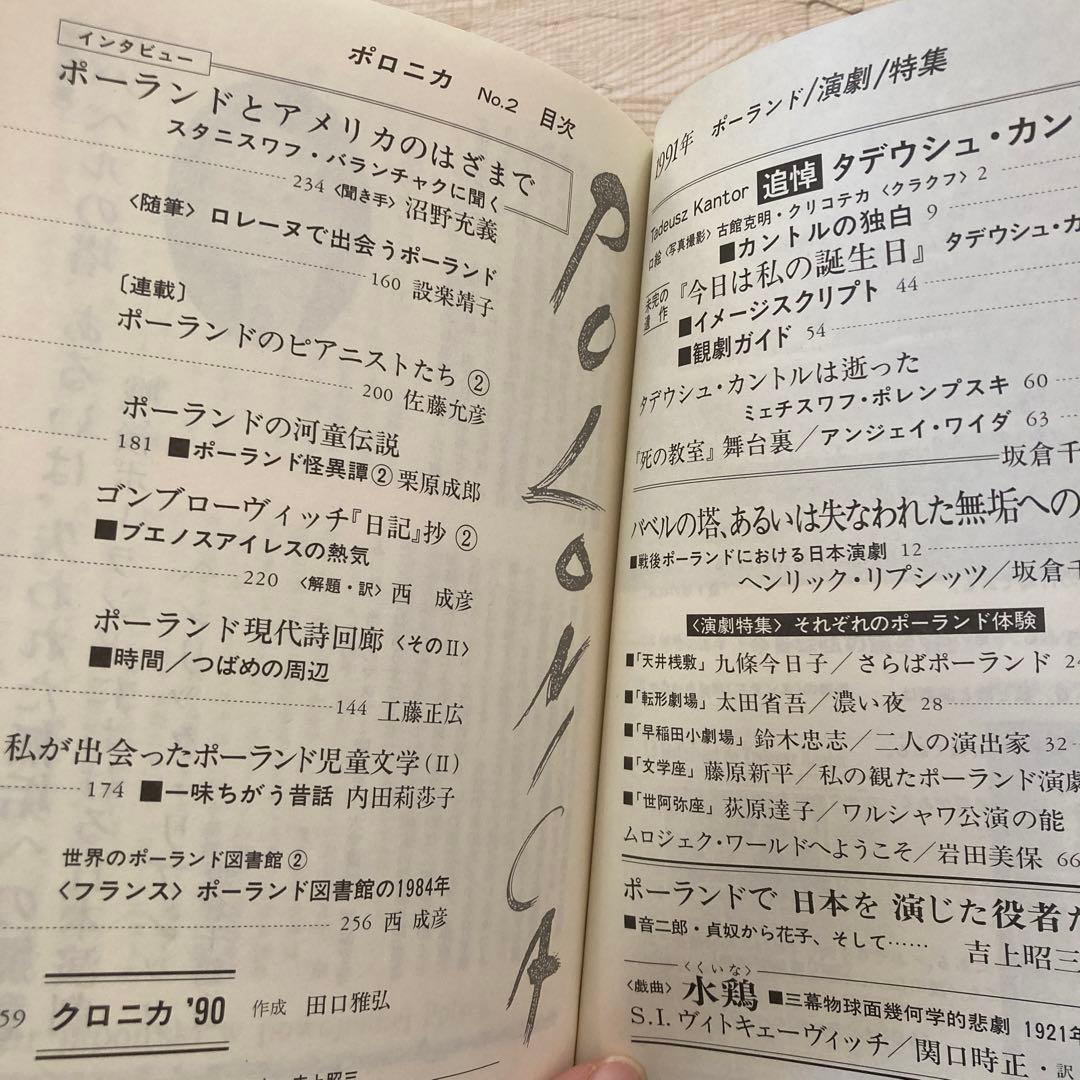 ポロニカ No.2 目次
インタビュー
ポーランドとアメリカのはざまで
スタニスワフ・バランチャクに聞く
234 〈聞き手〉 沼野充義
〈随筆〉 ロレーヌで出会うポーランド
160 設楽靖子
〔連載〕
ポーランドのピアニストたち ②
200 佐藤允彦
ポーランドの河童伝説
181 ■ポーランド怪異譚② 栗原成郎
ゴンブローヴィッチ『日記』抄 ②
■ブエノスアイレスの熱気
220 〈解題・訳〉 西 成彦
ポーランド現代詩回廊 〈そのII〉
■時間／つばめの周辺
144 工藤正広
私が出会ったポーランド児童文学(II)
174 ■一味ちがう昔話 内田莉莎子
世界のポーランド図書館②
〈フランス〉 ポーランド図書館の1984年
256 西 成彦
59 クロニカ '90 作成 田口雅弘
吉上昭三
POLONICA
1991年 ポーランド/演劇/特集
Tadeusz Kantor 追悼 タデウシュ・カン
口絵〈写真撮影〉古館克明・クリコテカ〈クラクフ〉 2
■カントルの独白 9
未完の遺作 『今日は私の誕生日』 タデウシュ・カ
■イメージスクリプト 44
■観劇ガイド 54
タデウシュ・カントルは逝った
ミェチスワフ・ポレンプスキ 60
『死の教室』舞台裏／アンジェイ・ワイダ 63
坂倉千
バベルの塔、あるいは失なわれた無垢への
■戦後ポーランドにおける日本演劇 12
ヘンリック・リプシッツ／坂倉千
〈演劇特集〉 それぞれのポーランド体験
■「天井桟敷」 九條今日子／さらばポーランド 24
■「転形劇場」 太田省吾／濃い夜 28
■「早稲田小劇場」 鈴木忠志／二人の演出家 32
■「文学座」 藤原新平／私の観たポーランド演劇
■「世阿弥座」 荻原達子／ワルシャワ公演の能
ムロジェク・ワールドへようこそ／岩田美保 66
ポーランドで 日本を 演じた役者た
■音二郎・貞奴から花子、そして…… 吉上昭三
〈戯曲〉 水鶏〈くいな〉 ■三幕物球面幾何学的悲劇 1921年
S.I.ヴィトキェーヴィッチ／関口時正・訳